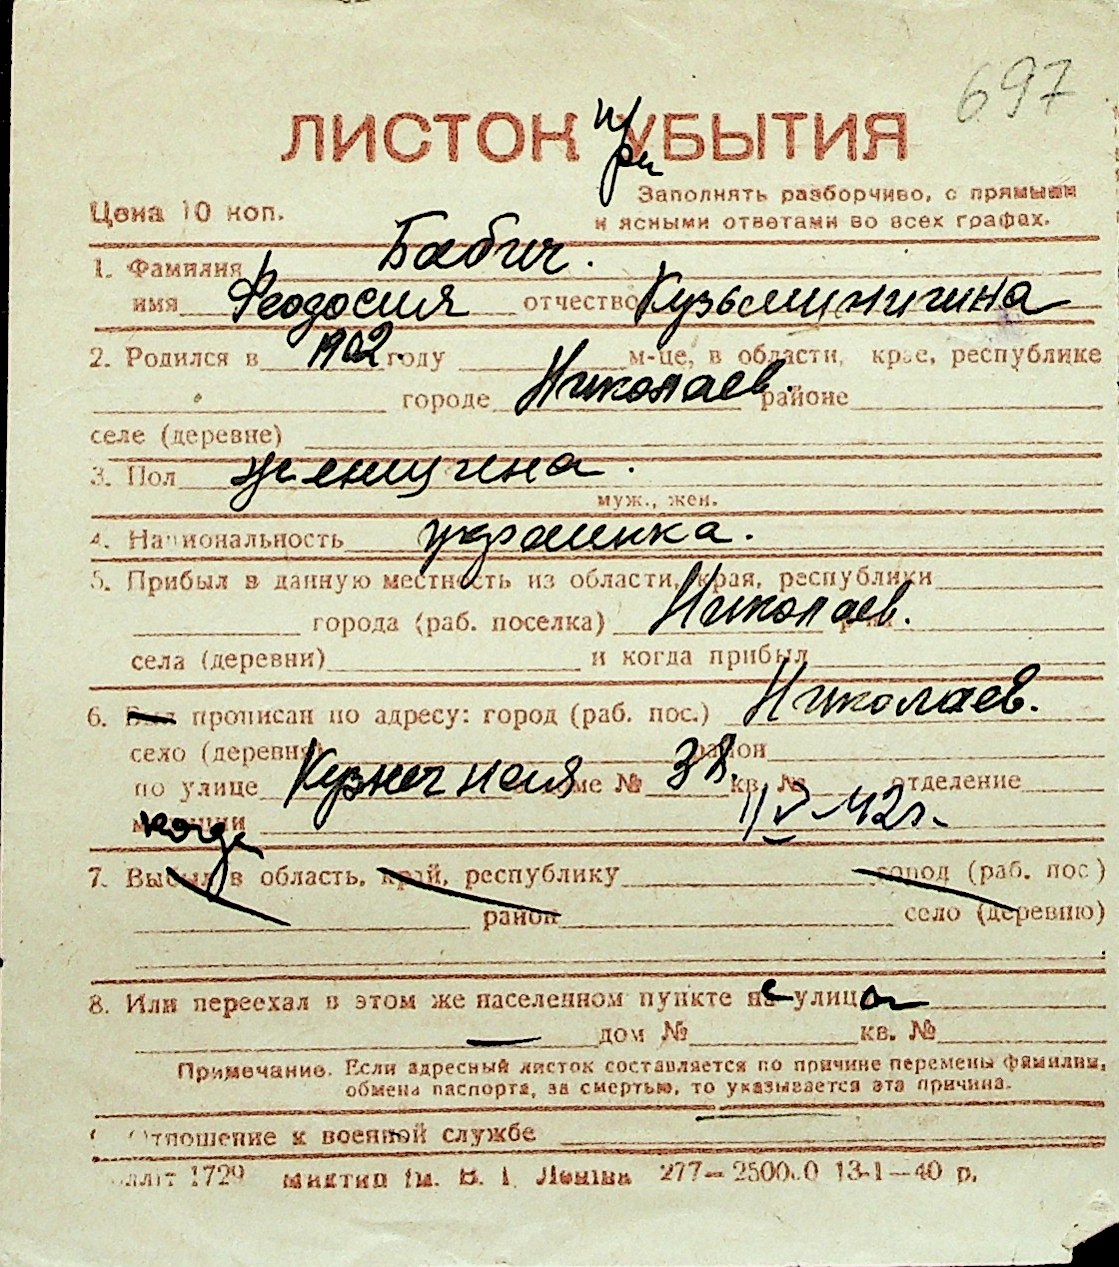 697
ЛИСТОК при УБЫТИЯ
Цена 10 коп.
Заполнять разборчиво, с прямыми
и ясными ответами во всех графах.
1. Фамилия Бабич.
имя Феодосия отчество Кузьминична
2. Родился в 1902 году м-це, в области, крае, республике
городе Николаев. районе
селе (деревне)
3. Пол женщина.
муж., жен.
4. Национальность украинка.
5. Прибыл в данную местность из области, края, республики
города (раб. поселка) Николаев.
села (деревни) и когда прибыл
6. Был прописан по адресу: город (раб. пос.) Николаев.
село (деревня) район
по улице Кузнечная доме № 38. кв. № отделение
милиции когда 11 V 42г.
7. Выбыл в область, край, республику город (раб. пос)
район село (деревню)
8. Или переехал в этом же населенном пункте на улицу
дом № кв. №
Примечание. Если адресный листок составляется по причине перемены фамилии,
обмена паспорта, за смертью, то указывается эта причина.
Отношение к военной службе
1729 277— 13-1—40 р.